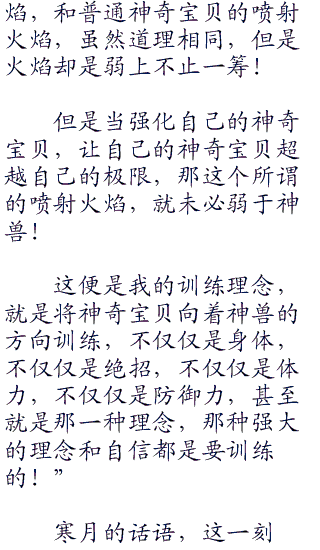 焰，和普通神奇宝贝的喷射
火焰，虽然道理相同，但是
火焰却是弱上不止一筹！
但是当强化自己的神奇
宝贝，让自己的神奇宝贝超
越自己的极限，那这个所谓
的喷射火焰，就未必弱于神
兽！
这便是我的训练理念，
就是将神奇宝贝向着神兽的
方向训练，不仅仅是身体，
不仅仅是绝招，不仅仅是体
力，不仅仅是防御力，甚至
就是那一种理念，那种强大
的理念和自信都是要训练
的！”
寒月的话语，这一刻